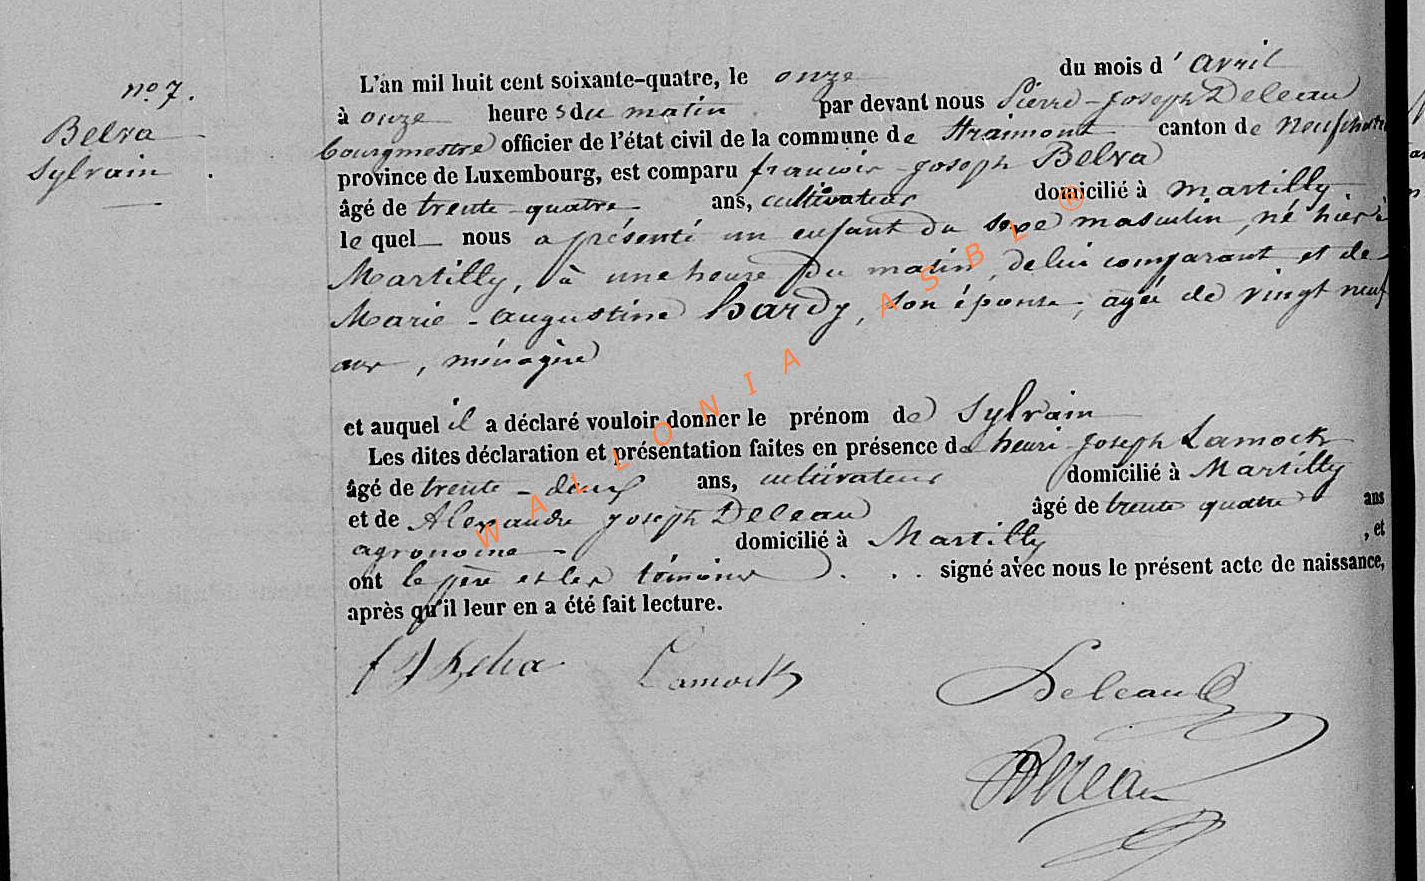 no. 7.
Belva
Sylvain
L'an mil huit cent soixante-quatre, le onze du mois d'avril
à onze heures du matin par devant nous Pierre-Joseph Deleau
bourgmestre officier de l'état civil de la commune de Straimont canton de Neufchateau
province de Luxembourg, est comparu françois-joseph Belva
âgé de trente-quatre ans, cultivateur domicilié à Martilly,
lequel nous a présenté un enfant du sexe masculin, né hier à
Martilly, à une heure du matin, de lui comparant et de
Marie-augustine hardy, son épouse, agée de vingt neuf
ans, ménagère
et auquel il a déclaré vouloir donner le prénom de Sylvain
Les dites déclaration et présentation faites en présence de henri joseph Lamock
âgé de trente-deux ans, cultivateur domicilié à Martilly
et de Alexandre joseph Deleau âgé de trente quatre ans
agronome domicilié à Martilly, et
ont le père et les témoins signé avec nous le présent acte de naissance,
après qu'il leur en a été fait lecture.
f J Belva Lamock Deleau
WALLONIA ASBL ®